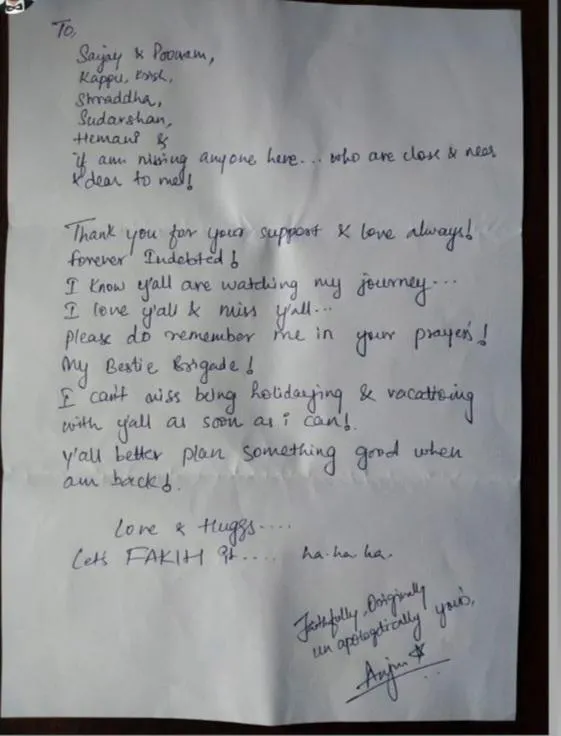 To,
Sanjay & Poonam,
Kappu, Krish,
Shraddha,
Sudarshan,
Hemani &
if am missing anyone here... who are close & near
& dear to me!
Thank you for your support & love always!
forever Indebted!
I know y'all are watching my journey...
I love y'all & miss y'all...
please do remember me in your prayers!
My Bestie Brigade!
I can't miss being holidaying & vacationing
with y'all as soon as i can!.
y'all better plan something good when
am back!.
Love & Huggs....
Lets FAKIH it.... ha.ha.ha.
Faithfully, Originally
un apologetically your's,
Anjum